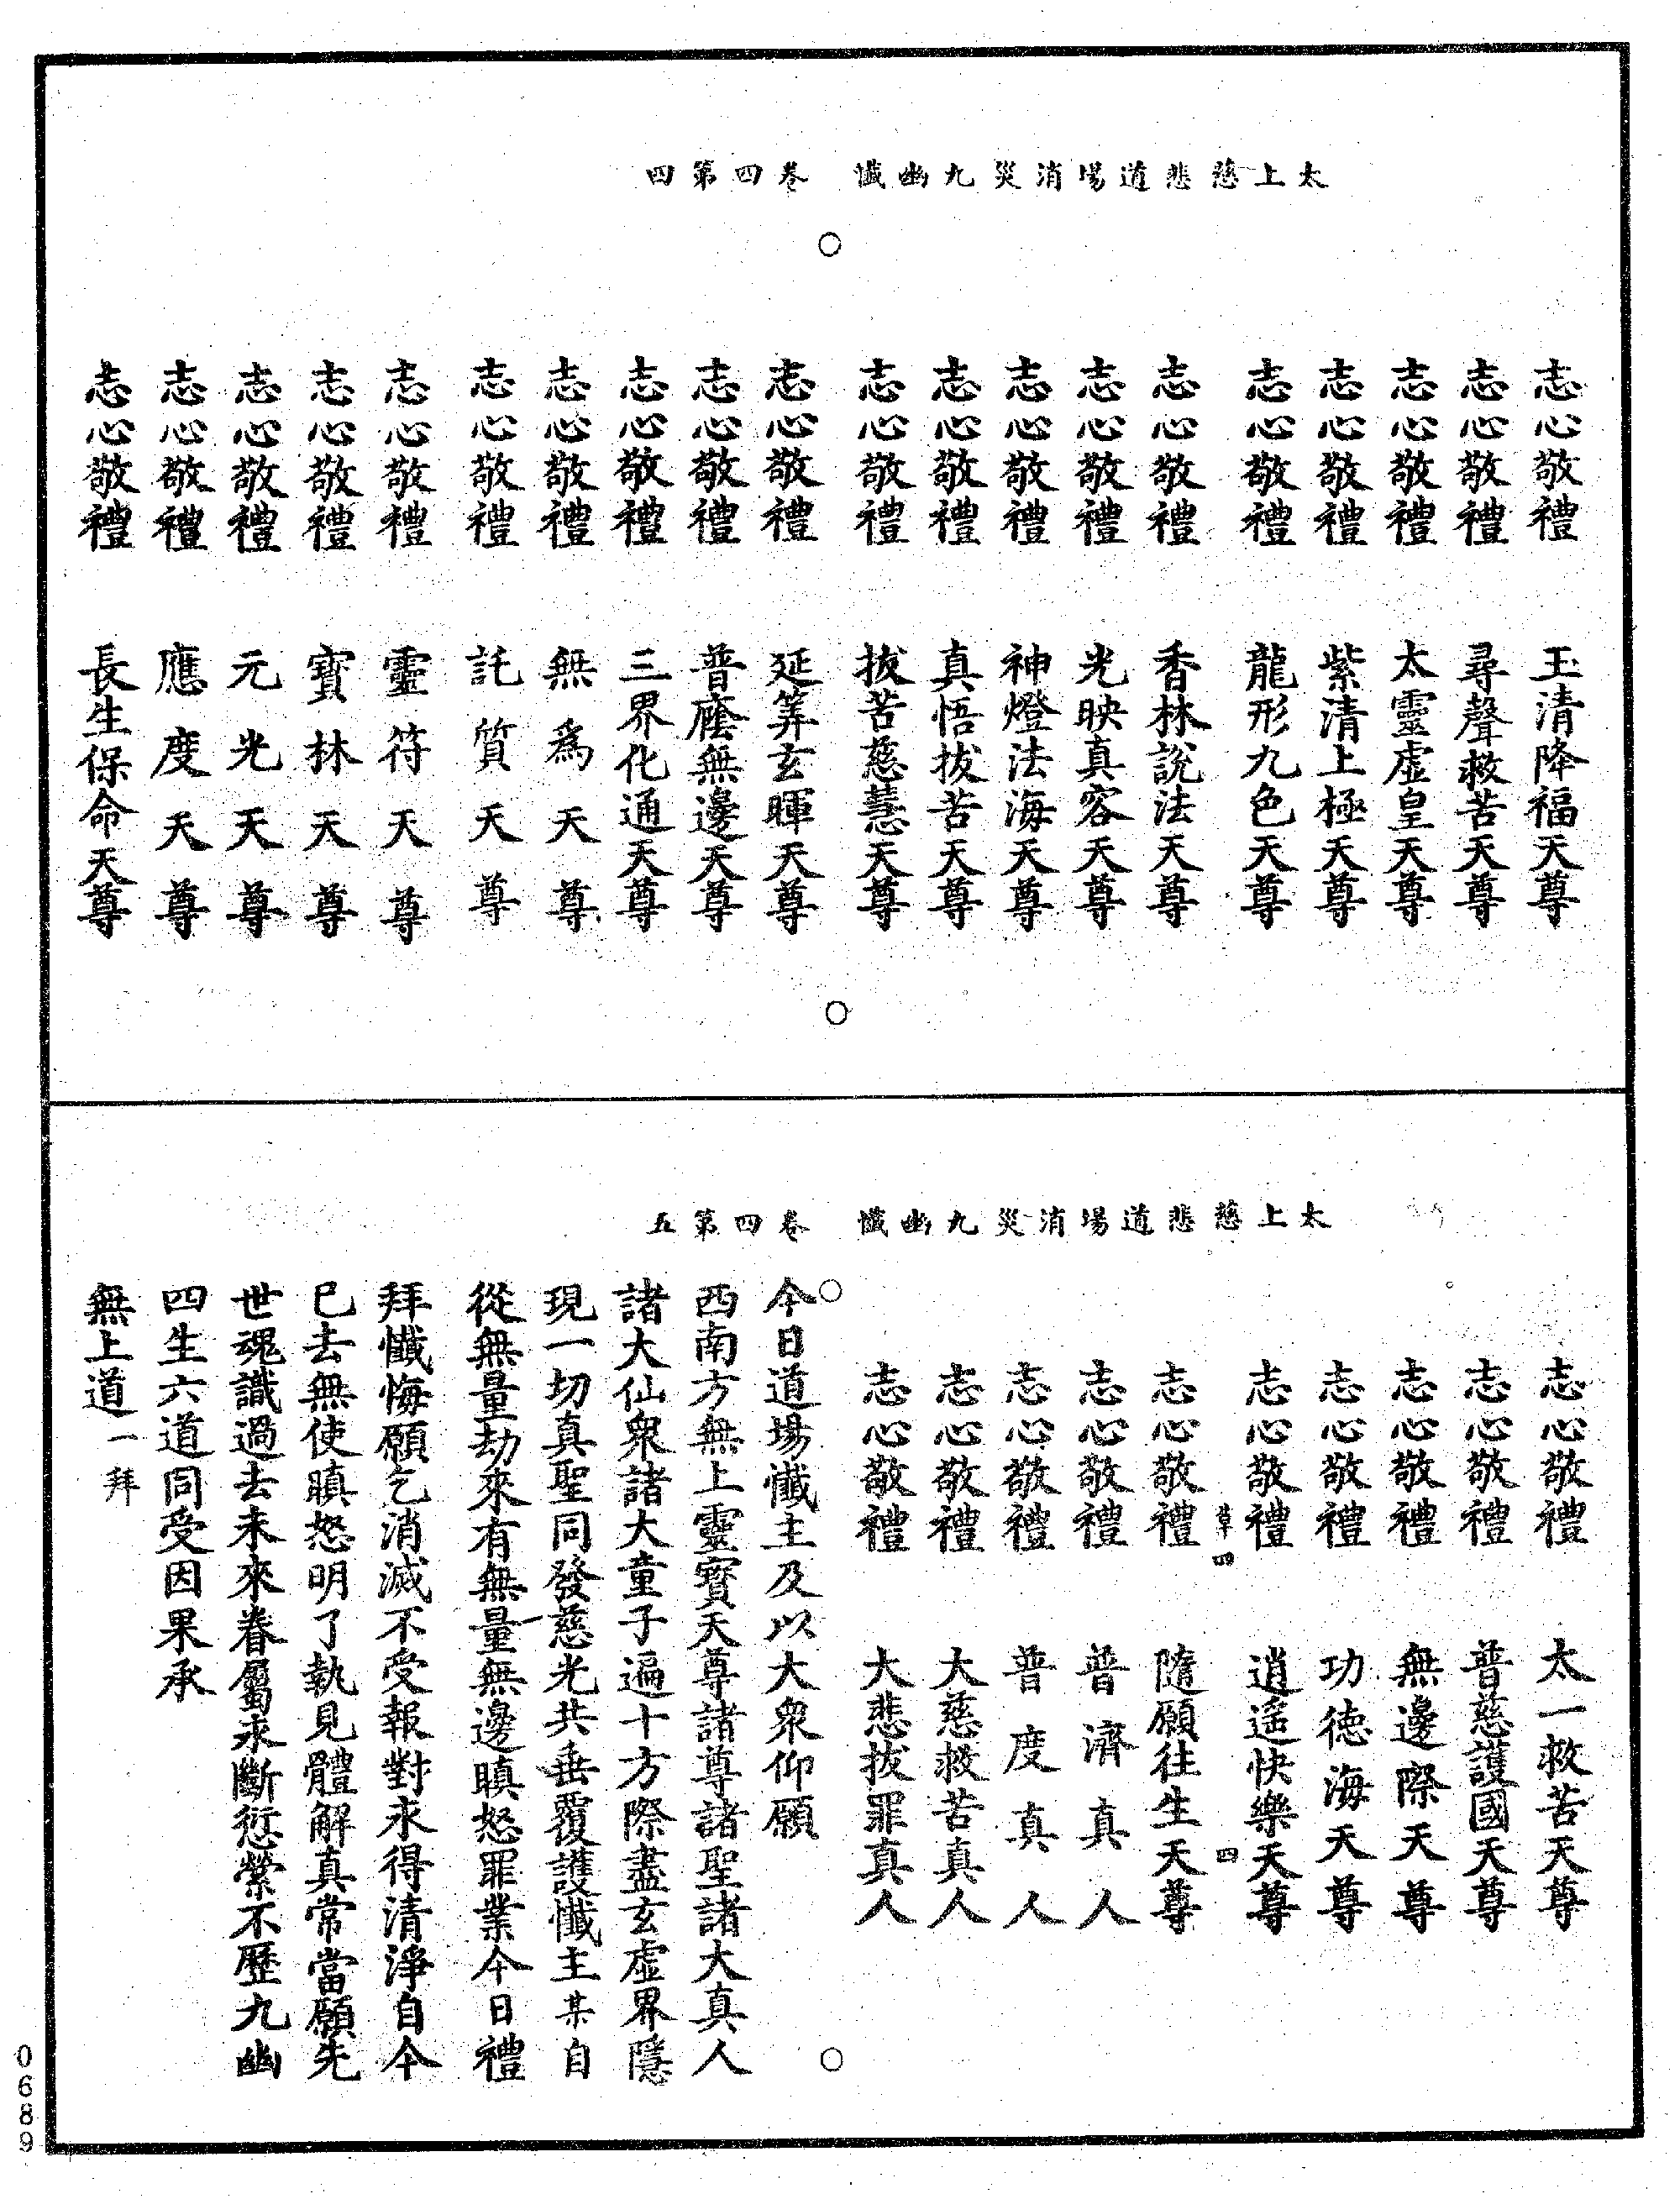 太上慈悲道場消災九幽懺　卷四第四
志心敬禮　玉清降福天尊
志心敬禮　尋聲救苦天尊
志心敬禮　太靈虛皇天尊
志心敬禮　紫清上極天尊
志心敬禮　龍形九色天尊
志心敬禮　香林說法天尊
志心敬禮　光映真容天尊
志心敬禮　神燈法海天尊
志心敬禮　真悟拔苦天尊
志心敬禮　拔苦慈慧天尊
志心敬禮　延筭玄暉天尊
志心敬禮　普廕無邊天尊
志心敬禮　三界化通天尊
志心敬禮　無為天尊
志心敬禮　託質天尊
志心敬禮　靈符天尊
志心敬禮　寶林天尊
志心敬禮　元光天尊
志心敬禮　應度天尊
志心敬禮　長生保命天尊
太上慈悲道場消災九幽懺　卷四第五
志心敬禮　太一救苦天尊
志心敬禮　普慈護國天尊
志心敬禮　無邊際天尊
志心敬禮　功德海天尊
志心敬禮　逍遙快樂天尊
草四　四
志心敬禮　隨願往生天尊
志心敬禮　普濟真人
志心敬禮　普度真人
志心敬禮　大慈救苦真人
志心敬禮　大悲拔罪真人
今日道場懺主及以大眾仰願
西南方無上靈寶天尊諸尊諸聖諸大真人
諸大仙眾諸大童子遍十方際盡玄虛界隱
現一切真聖同發慈光共垂覆護懺主某自
從無量劫來有無量無邊瞋怒罪業今日禮
拜懺悔願乞消滅不受報對永得清淨自今
已去無使瞋怒明了執見體解真常當願先
世魂識過去未來眷屬永斷愆縈不歷九幽
四生六道同受因果承
無上道一拜
0689